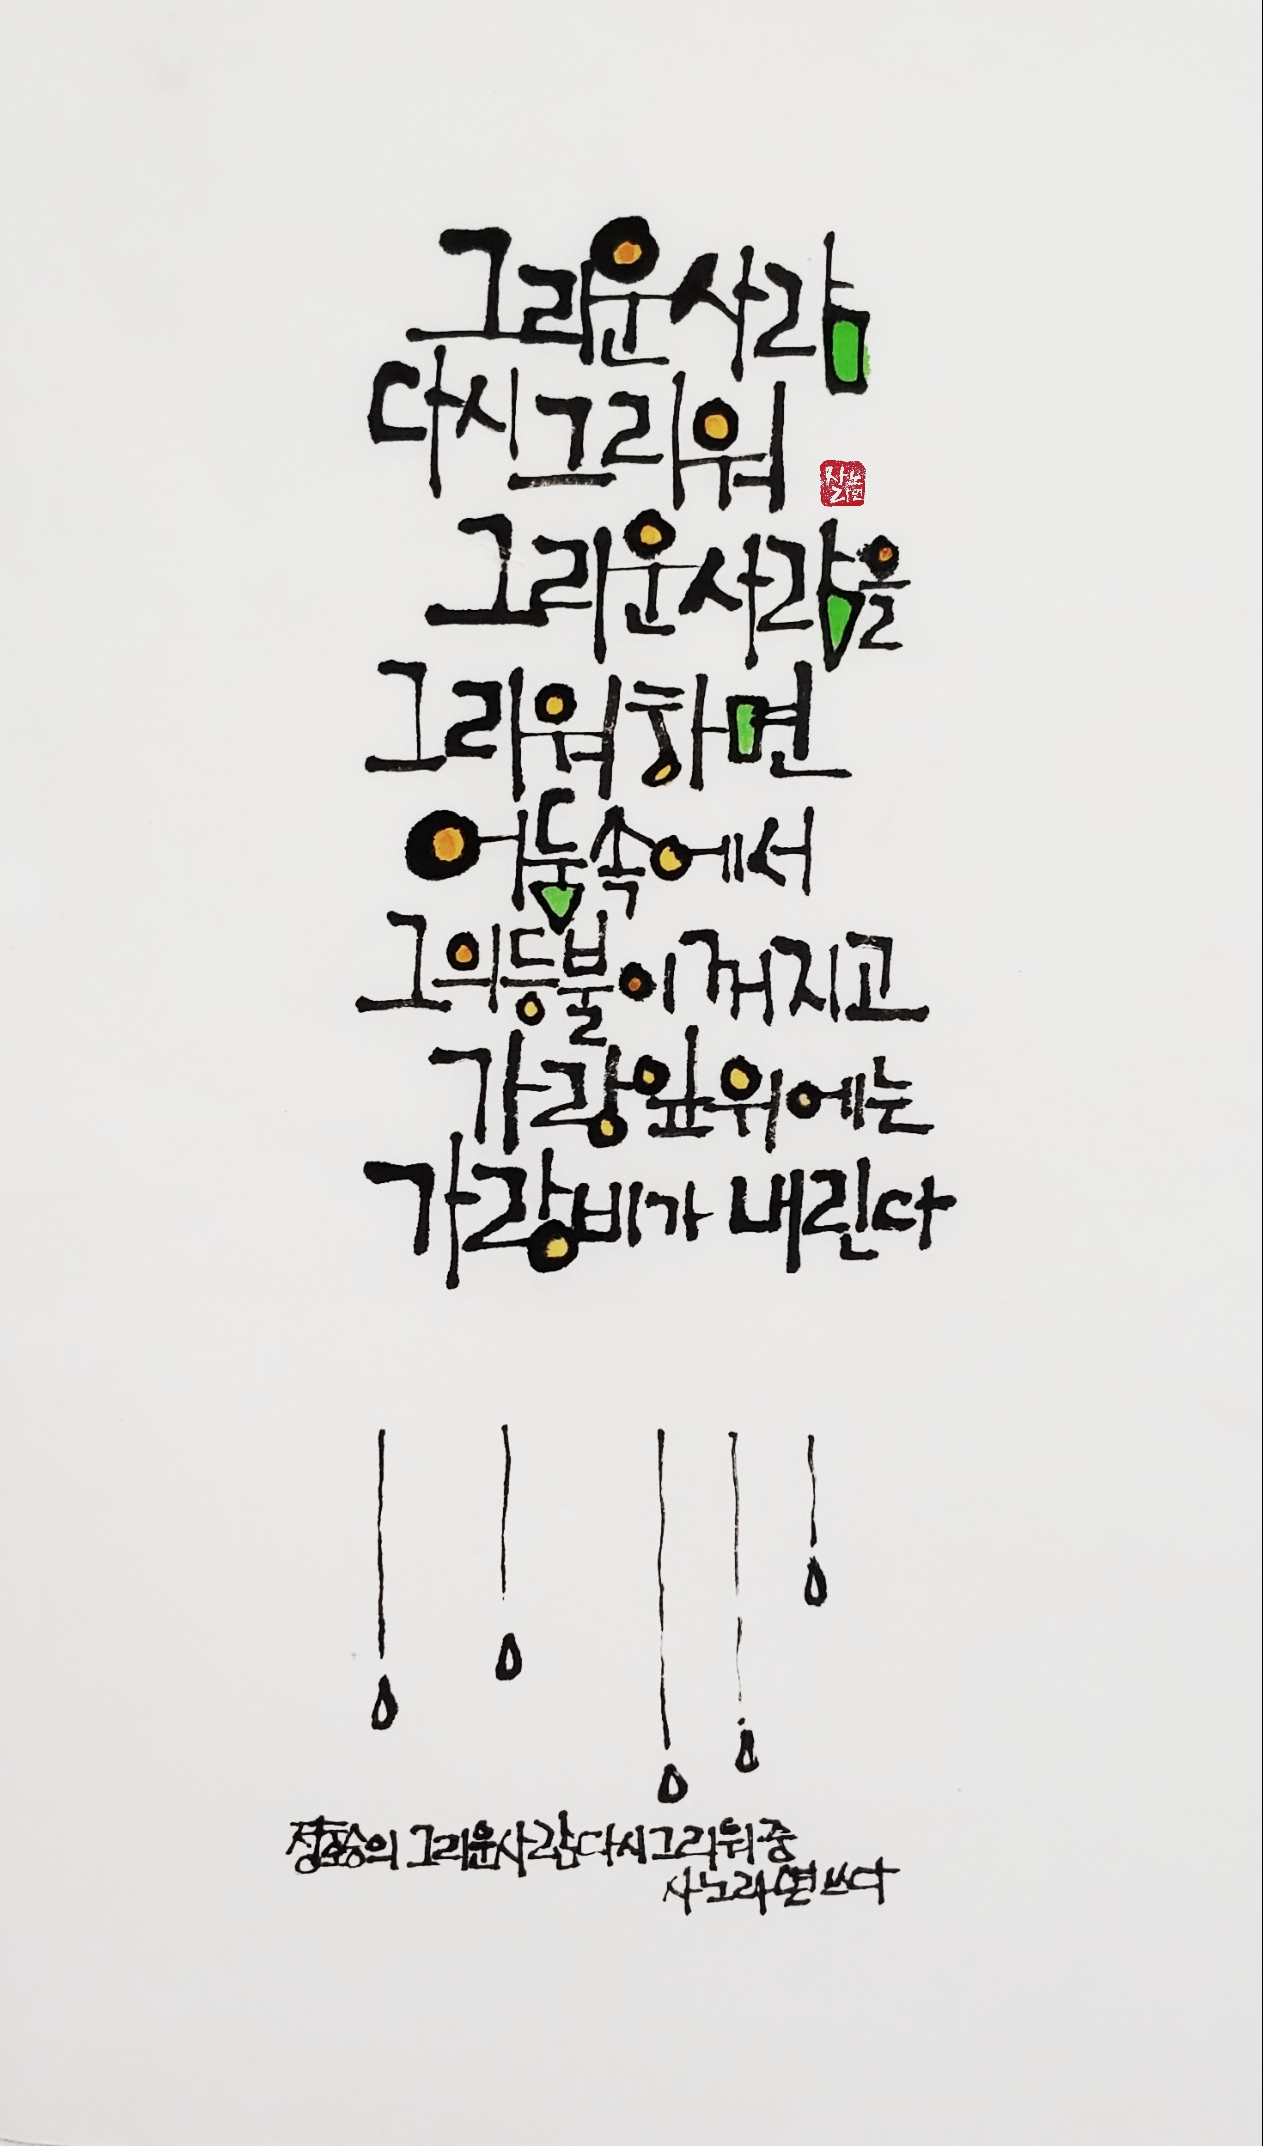 그리운 사람
다시 그리워
그리운 사람을
그리워하면
어둠 속에서
그의 등불이 꺼지고
가랑잎 위에는
가랑비가 내린다
정호승의 그리운 사람 다시 그리워 중
쓰다